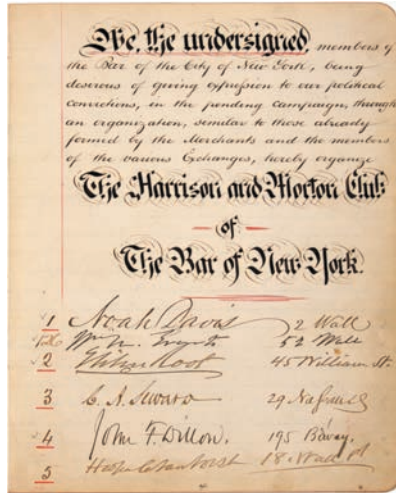 We, the undersigned, members of
the Bar of the City of New York, being
desirous of giving expression to our political
convictions, in the pending campaign, through
an organization, similar to those already
formed by the Merchants and the members
of the various Exchanges, hereby organize
The Harrison and Morton Club
of
The Bar of New York.
1 Noah Davis 2 Wall
Wm. M. Evarts 52 Wall
2 Elihu Root 45 William St.
3 C. A. Seward 29 Nassau
4 John F. Dillon. 195 B'way.
5 18 Wall St